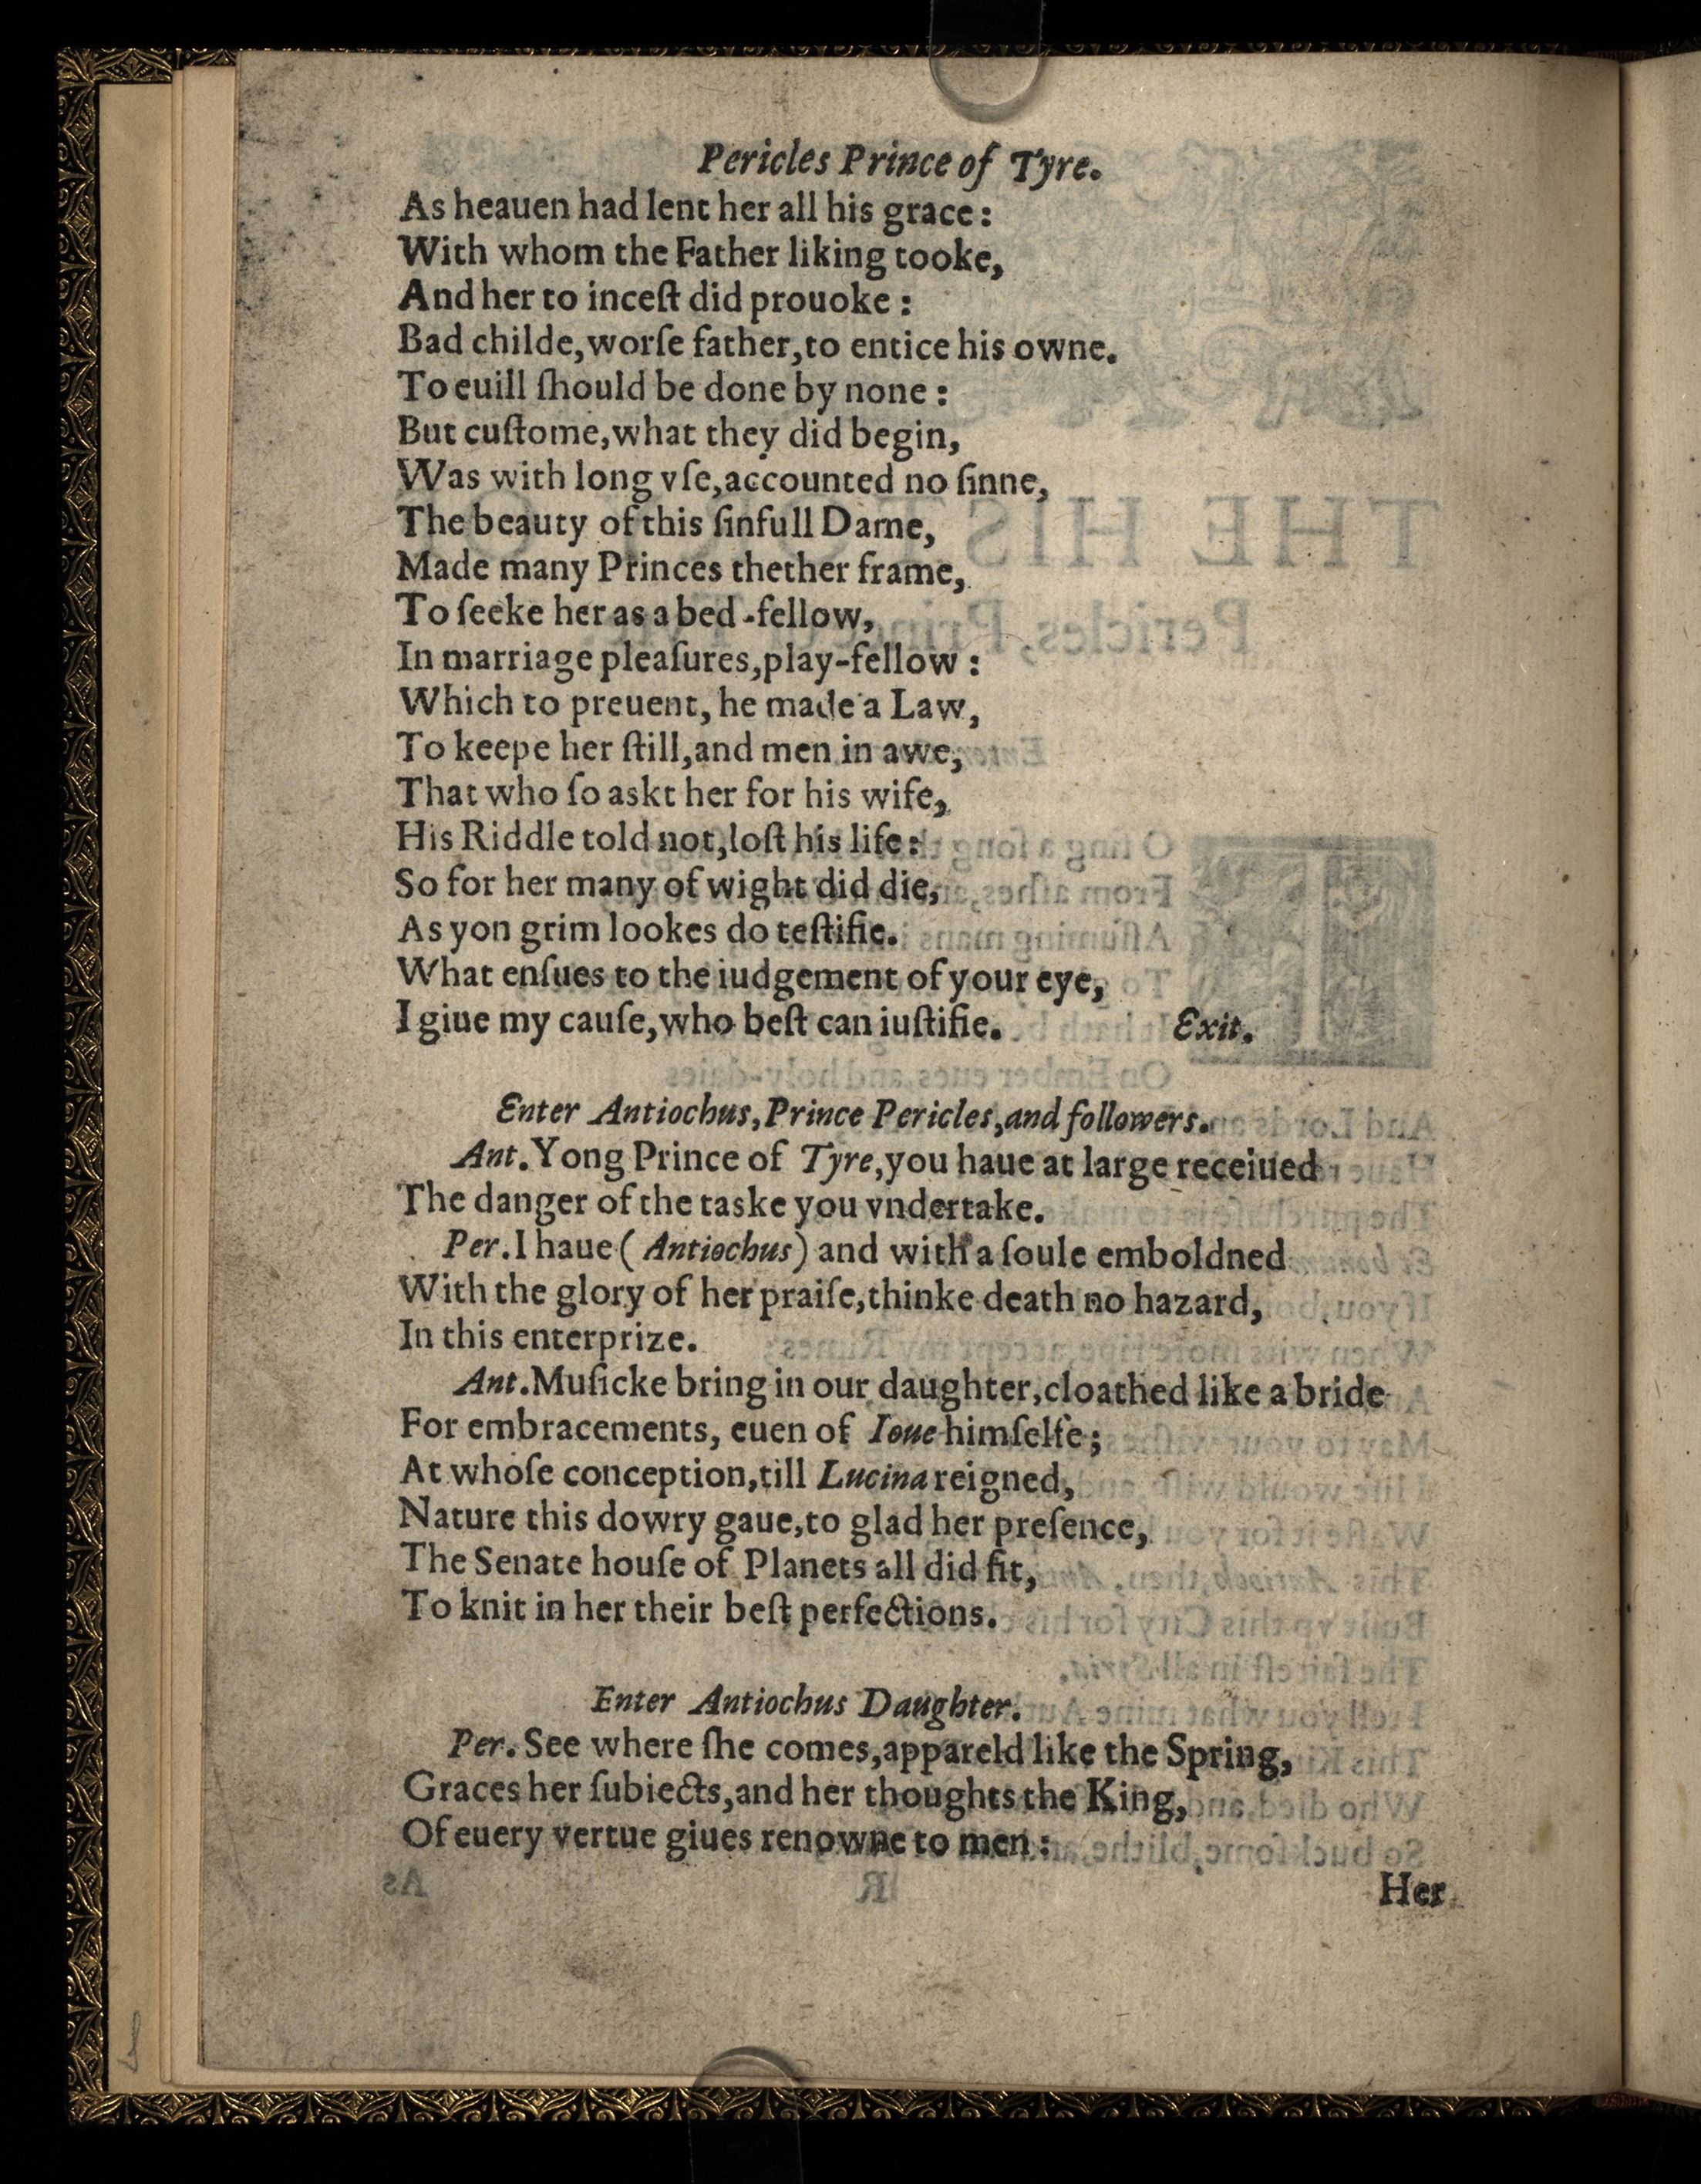 Pericles Prince of Tyre.
As heauen had lent her all his grace:
With whom the Father liking tooke,
And her to inceſt did prouoke:
Bad childe, worſe father, to entice his owne.
To euill ſhould be done by none:
But cuſtome, what they did begin,
Was with long vſe, accounted no ſinne,
The beauty of this ſinfull Dame,
Made many Princes thether frame,
To ſeeke her as a bed-fellow,
In marriage pleaſures, play-fellow:
Which to preuent, he made a Law,
To keepe her ſtill, and men in awe,
That who ſo askt her for his wife,
His Riddle told not, loſt his life:
So for her many of wight did die,
As yon grim lookes do teſtifie.
What enſues to the iudgement of your eye,
I giue my cauſe, who beſt can iuſtifie. Exit.
Enter Antiochus, Prince Pericles, and followers.
Ant. Yong Prince of Tyre, you haue at large receiued
The danger of the taske you vndertake.
Per. I haue (Antiochus) and with a ſoule emboldned
With the glory of her praiſe, thinke death no hazard,
In this enterprize.
Ant. Muſicke bring in our daughter, cloathed like a bride
For embracements, euen of Ioue himſelfe;
At whoſe conception, till Lucina reigned,
Nature this dowry gaue, to glad her preſence,
The Senate houſe of Planets all did ſit,
To knit in her their beſt perfections.
Enter Antiochus Daughter.
Per. See where ſhe comes, appareld like the Spring,
Graces her ſubiects, and her thoughts the King,
Of euery vertue giues renowne to men:
Her